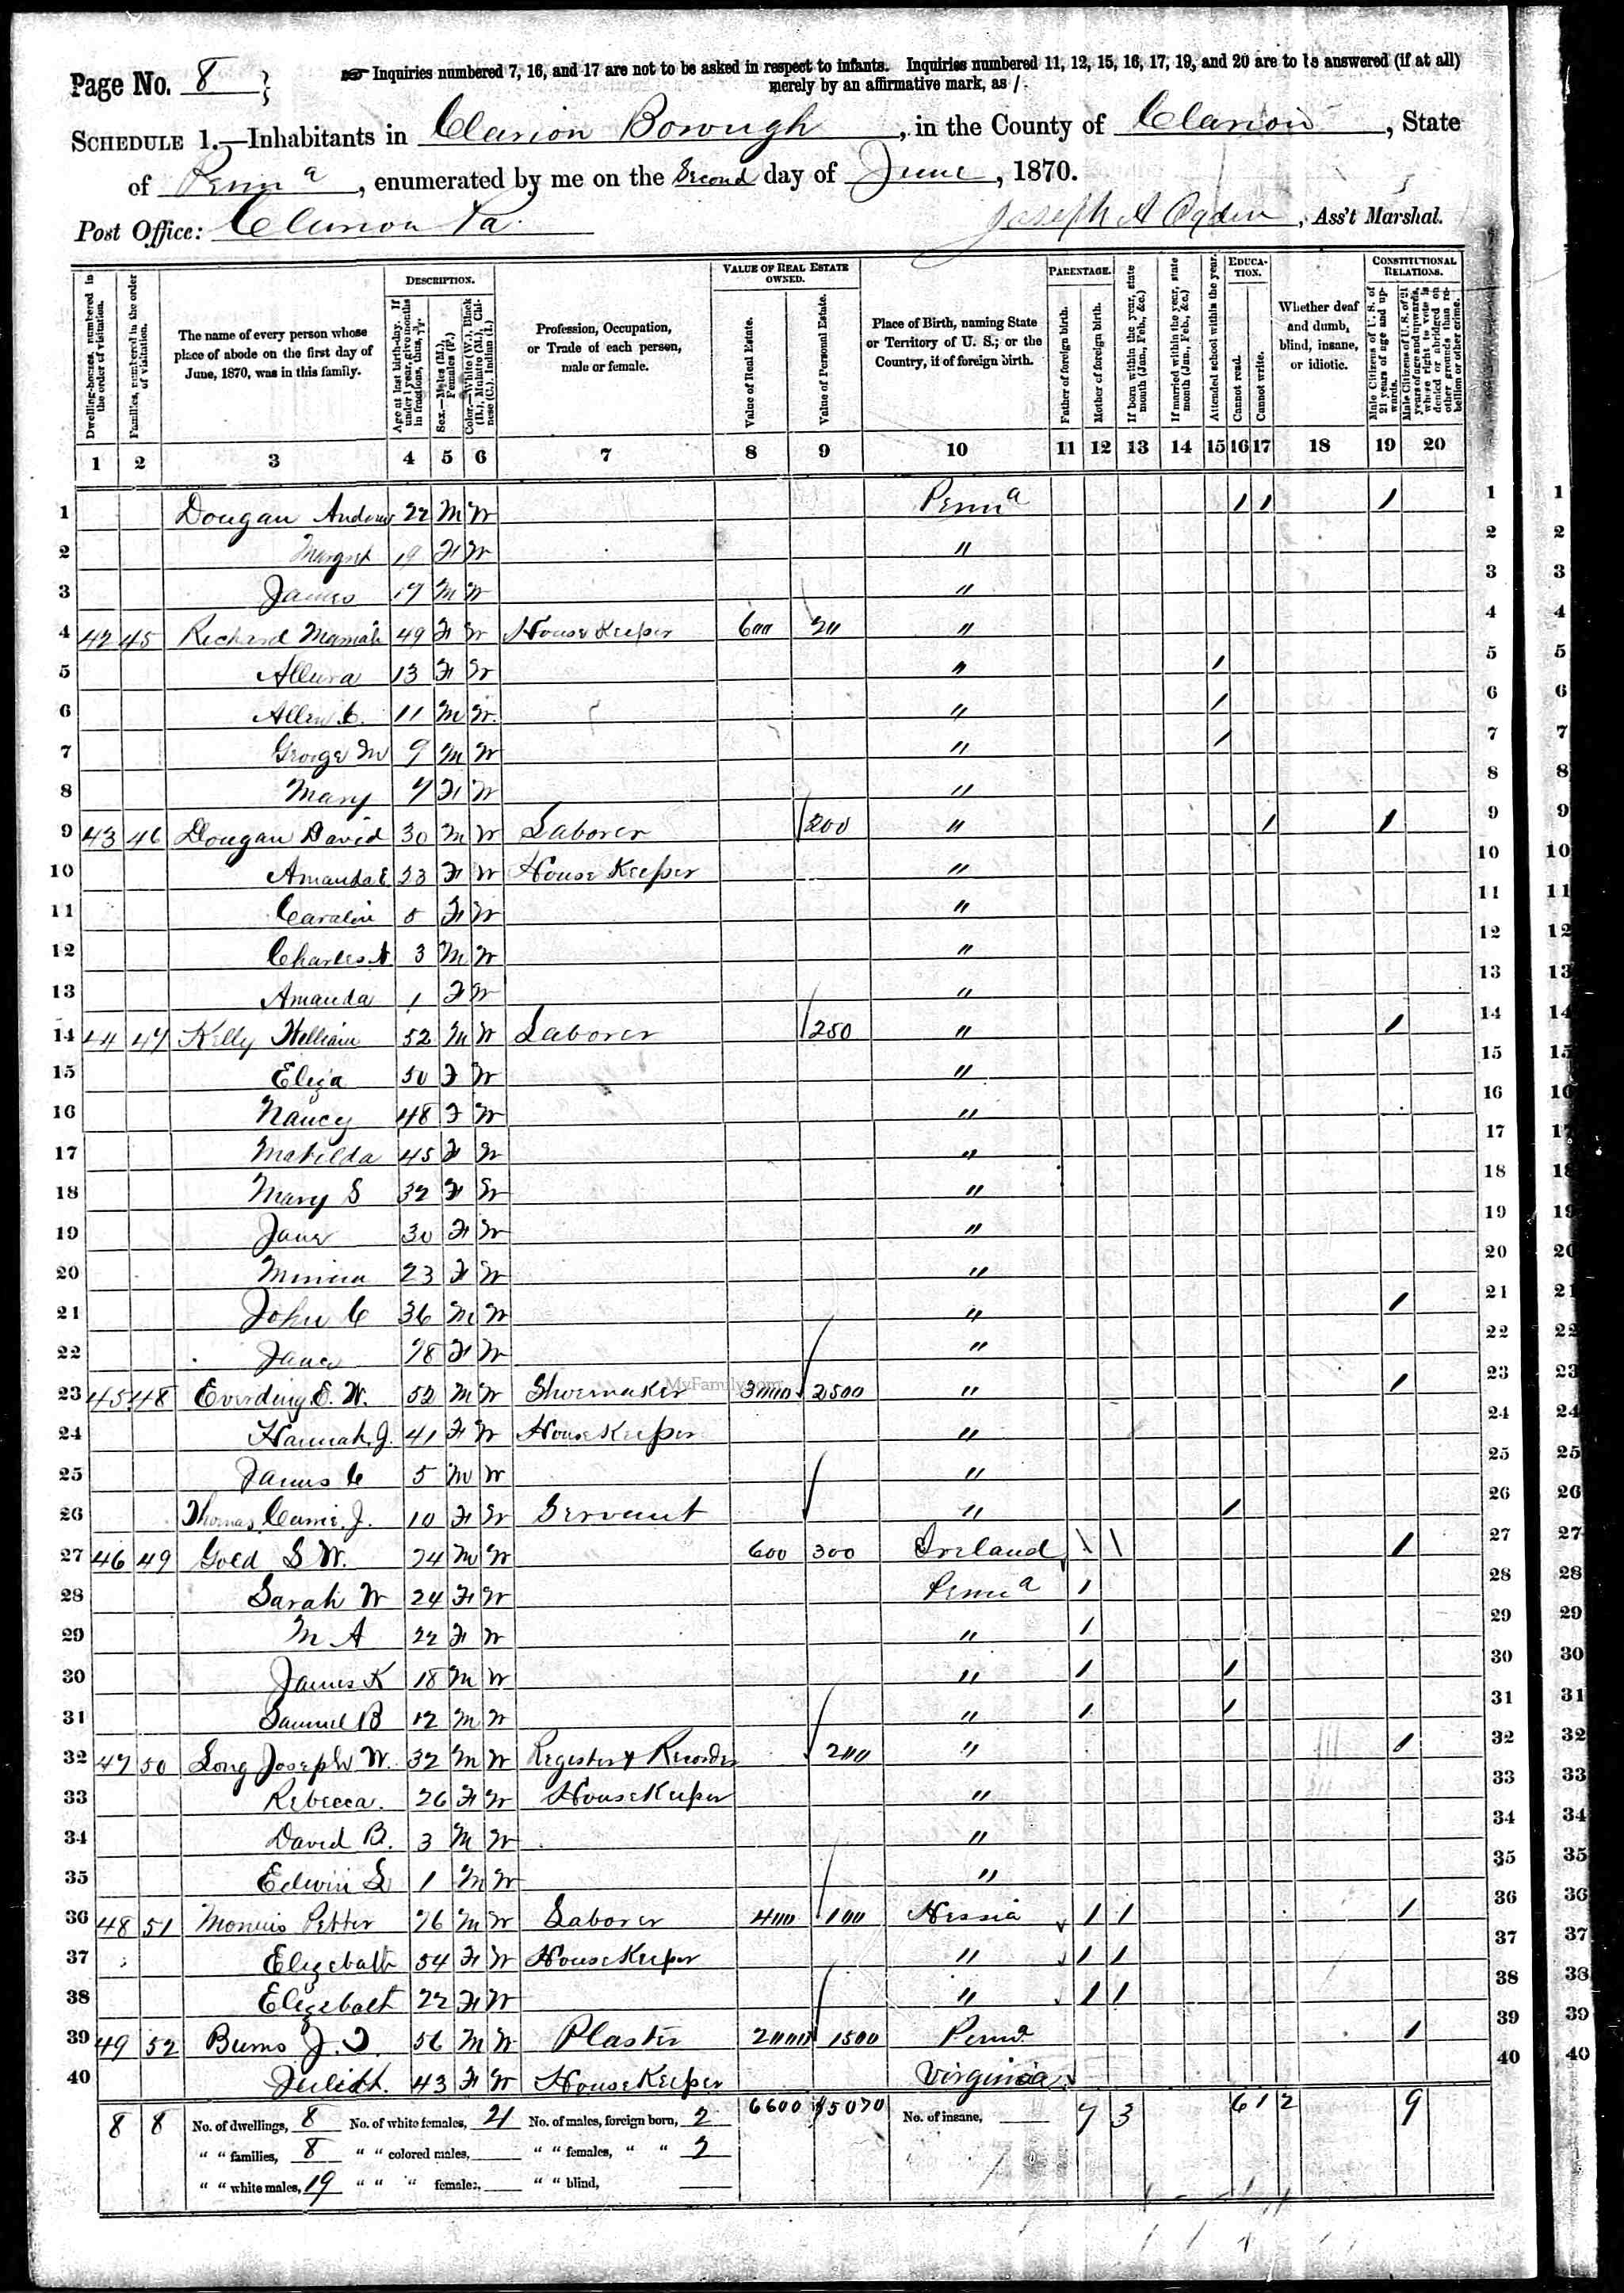 Page No. 8 } ☞ Inquiries numbered 7, 16, and 17 are not to be asked in respect to infants. Inquiries numbered 11, 12, 15, 16, 17, 19, and 20 are to be answered (if at all)
merely by an affirmative mark, as /.
SCHEDULE 1.—Inhabitants in Clarion Borough, in the County of Clarion, State
of Penna, enumerated by me on the Second day of June, 1870.
Post Office: Clarion Pa. Joseph A Ogden, Ass't Marshal.
Dwelling-houses, numbered in the order of visitation.
Families, numbered in the order of visitation.
The name of every person whose place of abode on the first day of June, 1870, was in this family.
DESCRIPTION.
Age at last birth-day. If under 1 year, give months in fractions, thus,
Sex.—Males (M.), Females (F.)
Color.—White (W.), Black (B.), Mulatto (M.), Chinese (C.), Indian (I.)
Profession, Occupation, or Trade of each person, male or female.
VALUE OF REAL ESTATE OWNED.
Value of Real Estate.
Value of Personal Estate.
Place of Birth, naming State or Territory of U. S.; or the Country, if of foreign birth.
PARENTAGE.
Father of foreign birth.
Mother of foreign birth.
If born within the year, state month (Jan., Feb., &c.)
If married within the year, state month (Jan., Feb., &c.)
Attended school within the year.
EDUCATION.
Cannot read.
Cannot write.
Whether deaf and dumb, blind, insane, or idiotic.
CONSTITUTIONAL RELATIONS.
Male Citizens of U. S. of 21 years of age and upwards.
Male Citizens of U. S. of 21 years of age and upwards, whose right to vote is denied or abridged on other grounds than rebellion or other crime.
1 2 3 4 5 6 7 8 9 10 11 12 13 14 15 16 17 18 19 20
1 Dougan Andrew 22 M W Penna / / / 1 1
2 Margret 19 F W " 2 2
3 James 17 M W " 3 3
4 42 45 Richard 49 F W House Keeper 600 20 " 4 4
5 13 F W " / 5 5
6 Allen C. 11 M W " / 6 6
7 George M 9 M W " / 7 7
8 Mary 7 F W " 8 8
9 43 46 Dougan David 30 M W Laborer 200 " / / 9 9
10 Amanda E 23 F W House Keeper " 10 10
11 Caralin 5 F W " 11 11
12 Charles A 3 M W " 12 12
13 Amanda 1 F W " 13 13
14 44 47 Kelly William 52 M W Laborer 250 " / 14 14
15 Eliza 50 F W " 15 15
16 Nancy 48 F W " 16 16
17 Matilda 45 F W " 17 17
18 Mary S 32 F W " 18 18
19 Jane 30 F W " 19 19
20 23 F W " 20 20
21 John C 36 M W " / 21 21
22 Jane 78 F W " 22 22
23 45 48 Everding E. W. 52 M W Shoemaker 3000 2500 " / 23 23
MyFamily.com
24 Hannah J. 41 F W House Keeper " 24 24
25 James C 5 M W " 25 25
26 Thomas J. 10 F W Servant " / 26 26
27 46 49 Goed S W. 74 M W 600 300 Ireland \ \ / 27 27
28 Sarah W 24 F W Penna / 28 28
29 M A 22 F W " / 29 29
30 James K 18 M W " / / 30 30
31 Samuel B 12 M W " / / 31 31
32 47 50 Long Joseph W. 32 M W Register & Recorder 200 " / 32 32
33 Rebecca. 26 F W House Keeper " 33 33
34 David B. 3 M W " 34 34
35 Edwin L 1 M W " 35 35
36 48 51 Petter 76 M W Laborer 400 100 Hessia / / / 36 36
37 Elizebath 54 F W House Keeper " / / 37 37
38 Elizebath 22 F W " / / 38 38
39 49 52 Burns J. D. 56 M W Plaster 2000 1500 Penna / 39 39
40 Judith. 43 F W House Keeper Virginia 40 40
8 8 No. of dwellings, 8 No. of white females, 21 No. of males, foreign born, 2 6600 $5070 No. of insane, 7 3 6 1 2 9
" " families, 8 " " colored males, " " females, " " 2
" " white males, 19 " " " females, " " blind,